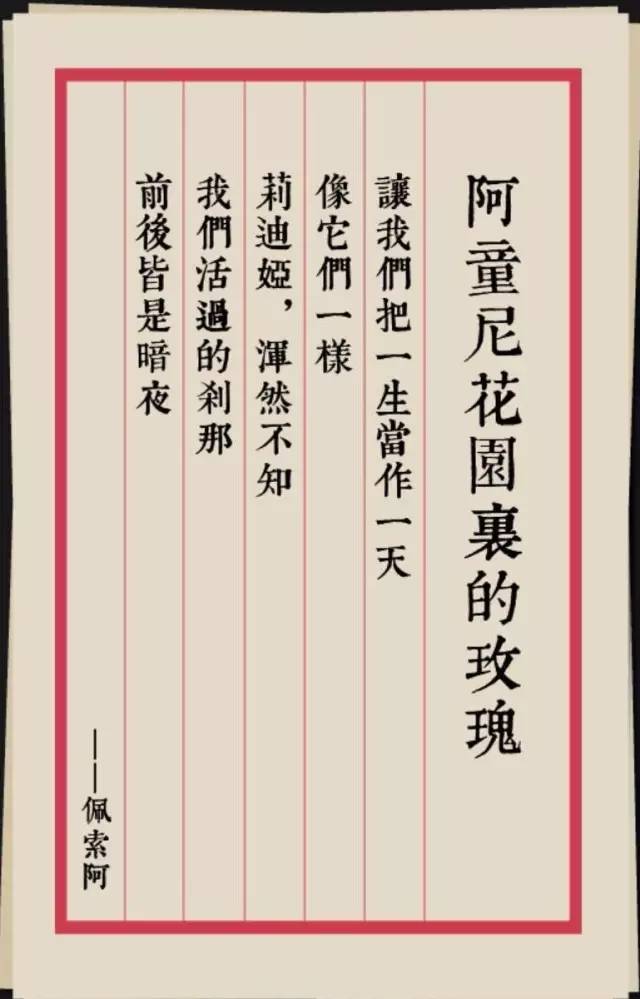 阿童尼花園裏的玫瑰
讓我們把一生當作一天
像它們一樣
莉迪婭，渾然不知
我們活過的剎那
前後皆是暗夜
——佩索阿